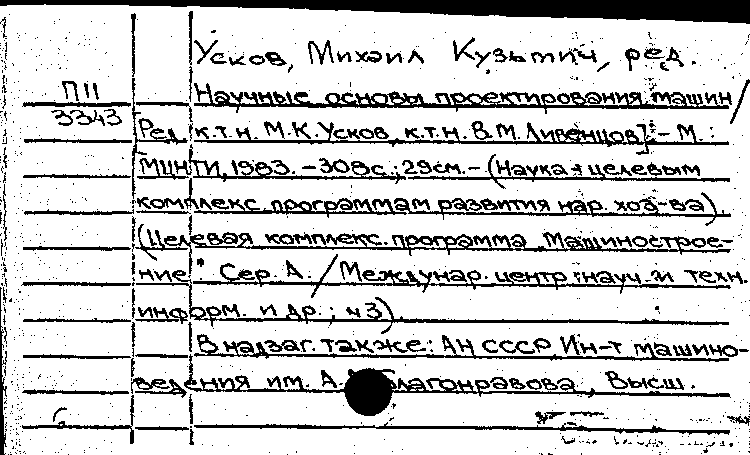 Усков, Михаил Кузьмич, ред.
П11 Научные основы проектирования машин/
3343 [Ред. к.т.н. М.К.Усков, к.т.н. В.М.Ливенцов]. – М.:
МЦНТИ, 1983. – 308с.; 29см. – (Наука – целевым
комплекс. программам развития нар. хоз-ва).
(Целевая комплекс. программа "Машинострое-
ние" Сер. А. / Междунар. центр науч. и техн.
информ. и др.; ч3).
В надзаг. также: АН СССР, Ин-т машино-
ведения им. А. Благонравова, Высш.